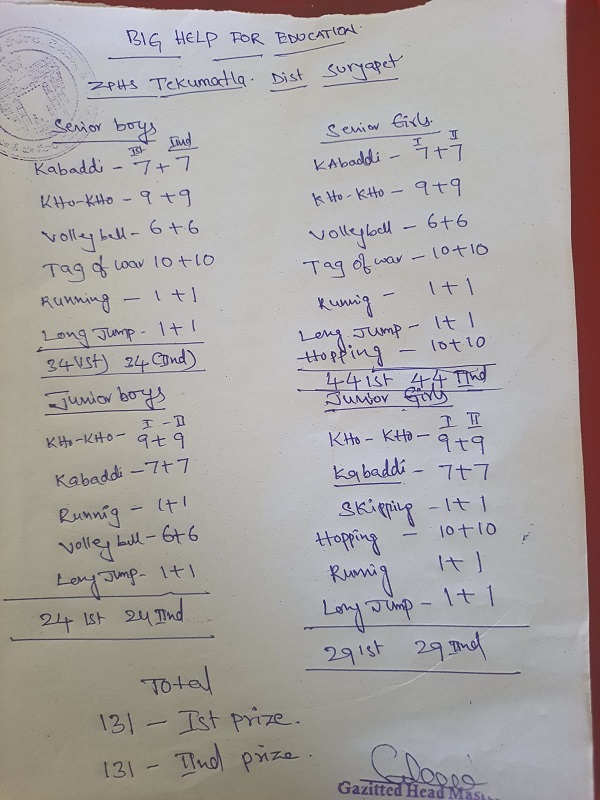 BIG HELP FOR EDUCATION.
ZPHS Tekumatla. Dist Suryapet
Senior boys
Ist IInd
Kabaddi - 7 + 7
KHo-KHo - 9 + 9
Volleyball - 6 + 6
Tag of war 10 + 10
Running - 1 + 1
Long Jump - 1 + 1
34 (Ist) 34 (IInd)
Junior boys
I - II
KHo-KHo - 9 + 9
Kabaddi - 7 + 7
Runnig - 1 + 1
Volley ball - 6 + 6
Long Jump - 1 + 1
24 Ist 24 IInd
Senior Girls.
I II
KAbaddi - 7 + 7
KHo-KHo - 9 + 9
Volleyball - 6 + 6
Tag of war - 10 + 10
Runnig - 1 + 1
Long Jump - 1 + 1
Hopping - 10 + 10
44 Ist 44 IInd
Junior Girls
I II
KHo - KHo - 9 + 9
Kabaddi - 7 + 7
Skipping - 1 + 1
Hopping - 10 + 10
Runnig 1 + 1
Long Jump - 1 + 1
29 Ist 29 IInd
Total
131 - Ist prize.
131 - IInd prize.
Gazitted Head Mas